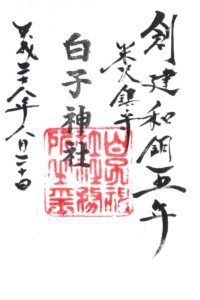 創建和銅五年
米沢鎮守
白子神社
平成二十八年八月二十四日